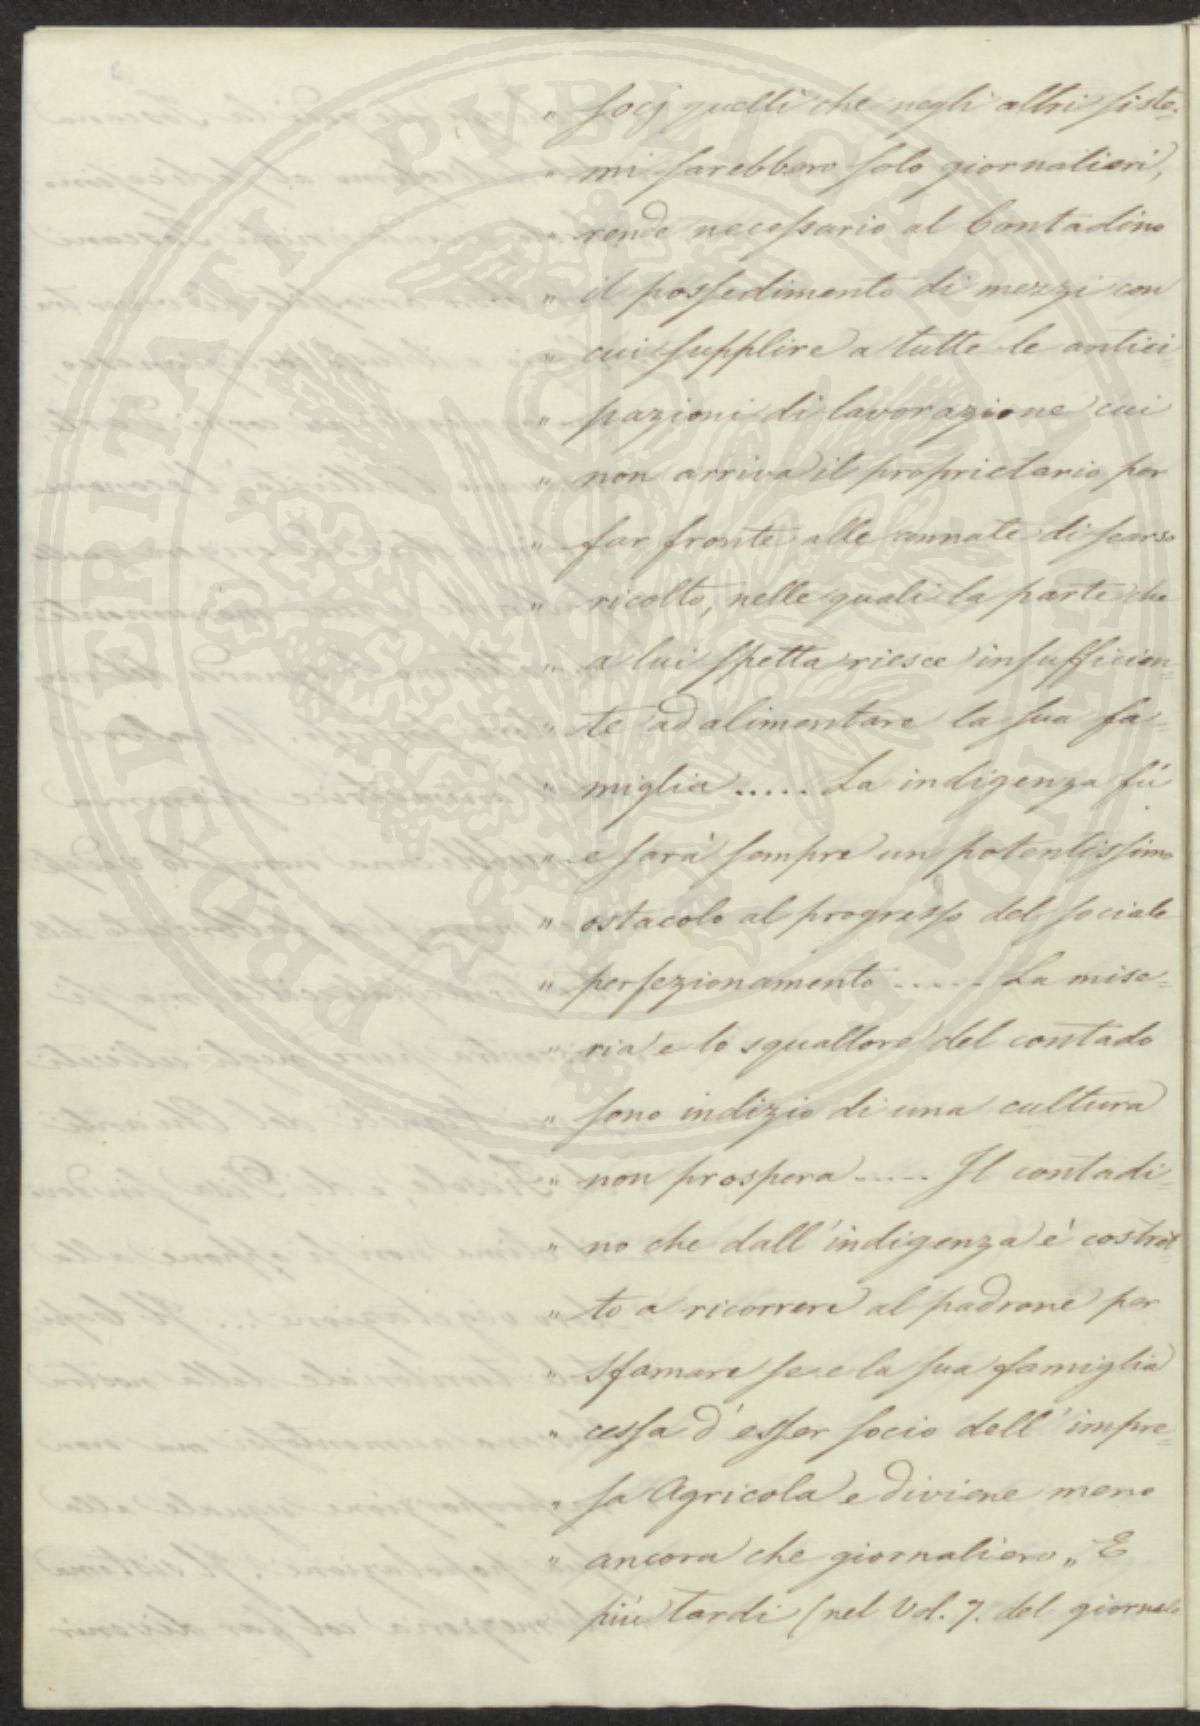 " socj quelli che negli altri siste=
" mi sarebbero solo giornalieri,
" rende necessario al Contadino
" il possedimento di mezzi con
" cui supplire a tutte le antici=
" pazioni di lavorazione cui
" non arriva il proprietario per
" far fronte alle annate di scarso
" ricolto, nelle quali la parte che
" a lui spetta riesce insufficien=
" te ad alimentare la sua fa=
" miglia ..... La indigenza fù
" e sarà sempre un potentissimo
" ostacolo al progresso del sociale
" perfezionamento ..... La mise=
" ria e lo squallore del contado
" sono indizio di una cultura
" non prospera ..... Il contadi=
" no che dall'indigenza è costret=
" to a ricorrere al padrone per
" sfamare se e la sua famiglia
" cessa d'esser socio dell'impre=
" sa Agricola e diviene meno
" ancora che giornaliero „ E
più tardi (nel Vol. 7. del giornale
PROSPERITATI PUBLICAE AUGENDAE